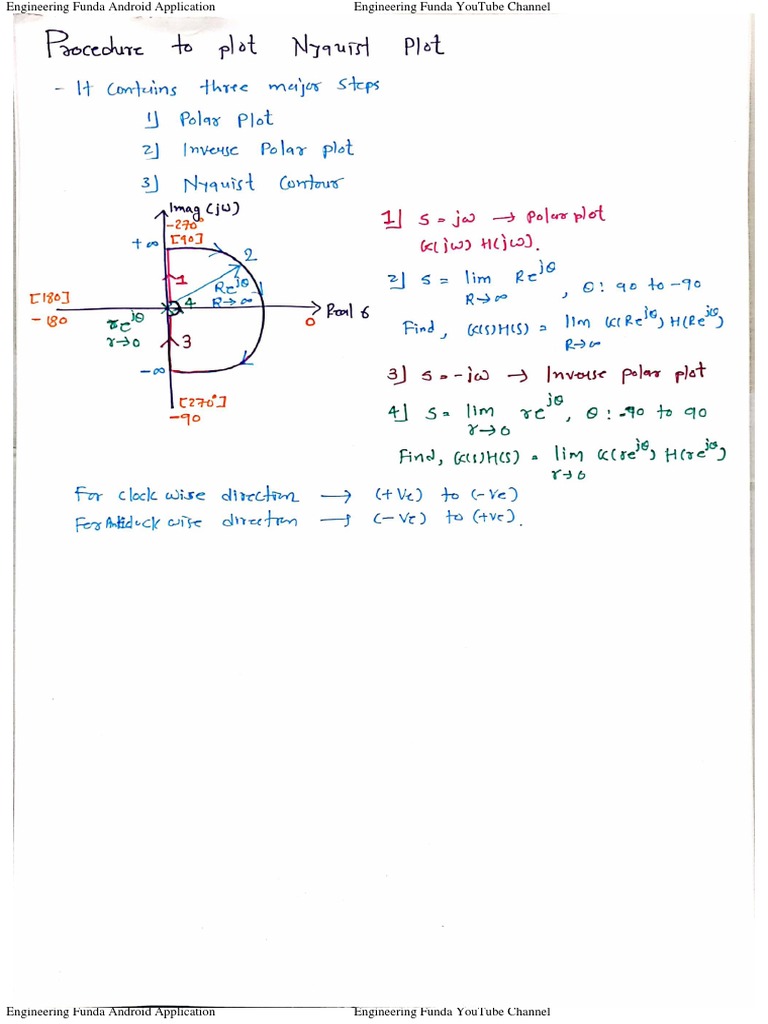 Engineering Funda Android Application Engineering Funda YouTube Channel
Procedure to plot Nyquist Plot
- It contains three major steps
1] Polar Plot
2] Inverse Polar plot
3] Nyquist Contour
Imag (jω)
-270°
[90]
+∞
2
1
Re^jθ
R→∞
[180]
-180
4
Real σ
0
re^jθ
r→0
3
-∞
[270°]
-90
1] s = jω → Polar plot
G(jω) H(jω).
2] s = lim Re^jθ , θ : 90 to -90
R→∞
Find, G(s)H(s) = lim G(Re^jθ) H(Re^jθ)
R→∞
3] s = -jω → Inverse polar plot
4] s = lim re^jθ , θ : -90 to 90
r→0
Find, G(s)H(s) = lim G(re^jθ) H(re^jθ)
r→0
For clock wise direction → (+ve) to (-ve)
For Anticlock wise direction → (-ve) to (+ve).
Engineering Funda Android Application Engineering Funda YouTube Channel